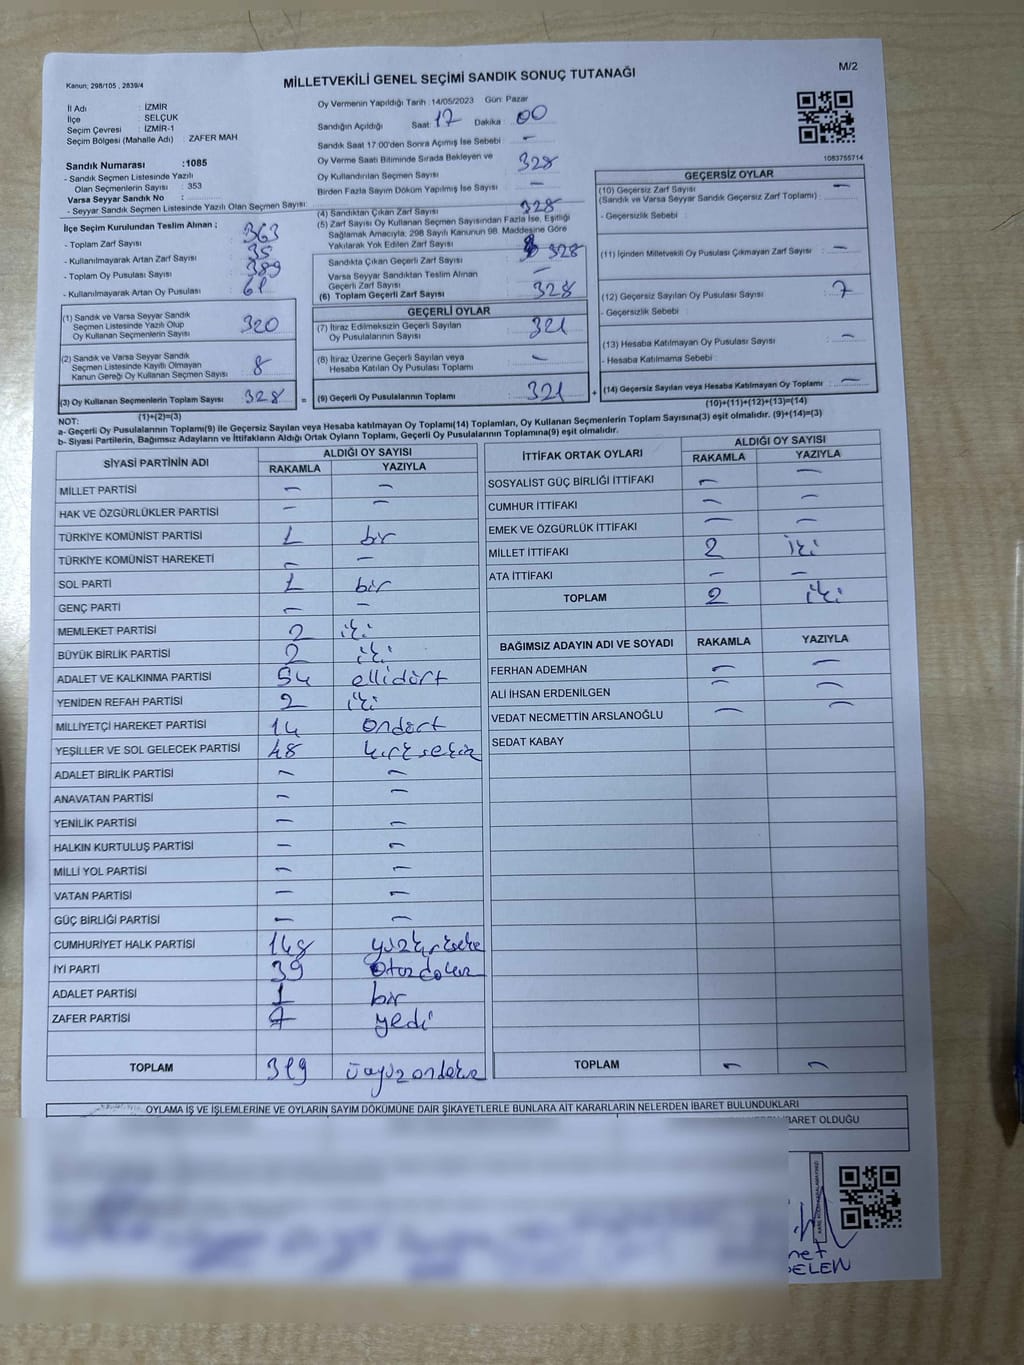 Kanun; 298/105 , 2839/4
MİLLETVEKİLİ GENEL SEÇİMİ SANDIK SONUÇ TUTANAĞI
M/2
İl Adı : İZMİR
İlçe : SELÇUK
Seçim Çevresi : İZMİR-1
Seçim Bölgesi (Mahalle Adı) : ZAFER MAH
Sandık Numarası :1085
- Sandık Seçmen Listesinde Yazılı
Olan Seçmenlerin Sayısı : 353
Varsa Seyyar Sandık No :
- Seyyar Sandık Seçmen Listesinde Yazılı Olan Seçmen Sayısı:
Oy Vermenin Yapıldığı Tarih :14/05/2023 Gün: Pazar
Sandığın Açıldığı Saat: 17 Dakika : 00
Sandık Saat 17.00'den Sonra Açılmış İse Sebebi : –
Oy Verme Saati Bitiminde Sırada Bekleyen ve
Oy Kullandırılan Seçmen Sayısı : 328
Birden Fazla Sayım Döküm Yapılmış İse Sayısı : –
1083755714
İlçe Seçim Kurulundan Teslim Alınan ;
- Toplam Zarf Sayısı : 363
- Kullanılmayarak Artan Zarf Sayısı : 35
- Toplam Oy Pusulası Sayısı : 389
- Kullanılmayarak Artan Oy Pusulası : 61
(1) Sandık ve Varsa Seyyar Sandık
Seçmen Listesinde Yazılı Olup
Oy Kullanan Seçmenlerin Sayısı : 320
(2) Sandık ve Varsa Seyyar Sandık
Seçmen Listesinde Kayıtlı Olmayan
Kanun Gereği Oy Kullanan Seçmen Sayısı : 8
(3) Oy Kullanan Seçmenlerin Toplam Sayısı : 328 =
(1)+(2)=(3)
(4) Sandıktan Çıkan Zarf Sayısı : 328
(5) Zarf Sayısı Oy Kullanan Seçmen Sayısından Fazla İse, Eşitliği
Sağlamak Amacıyla; 298 Sayılı Kanunun 98. Maddesine Göre
Yakılarak Yok Edilen Zarf Sayısı :
Sandıkta Çıkan Geçerli Zarf Sayısı : 328
Varsa Seyyar Sandıktan Teslim Alınan
Geçerli Zarf Sayısı : –
(6) Toplam Geçerli Zarf Sayısı : 328
GEÇERLİ OYLAR
(7) İtiraz Edilmeksizin Geçerli Sayılan
Oy Pusulalarının Sayısı : 321
(8) İtiraz Üzerine Geçerli Sayılan veya
Hesaba Katılan Oy Pusulası Toplamı : –
(9) Geçerli Oy Pusulalarının Toplamı : 321 +
GEÇERSİZ OYLAR
(10) Geçersiz Zarf Sayısı : –
(Sandık ve Varsa Seyyar Sandık Geçersiz Zarf Toplamı)
- Geçersizlik Sebebi :
(11) İçinden Milletvekili Oy Pusulası Çıkmayan Zarf Sayısı : –
(12) Geçersiz Sayılan Oy Pusulası Sayısı : 7
- Geçersizlik Sebebi :
(13) Hesaba Katılmayan Oy Pusulası Sayısı : –
- Hesaba Katılmama Sebebi :
(14) Geçersiz Sayılan veya Hesaba Katılmayan Oy Toplamı : –
(10)+(11)+(12)+(13)=(14)
NOT:
a- Geçerli Oy Pusulalarının Toplamı(9) ile Geçersiz Sayılan veya Hesaba katılmayan Oy Toplamı(14) Toplamları, Oy Kullanan Seçmenlerin Toplam Sayısına(3) eşit olmalıdır. (9)+(14)=(3)
b- Siyasi Partilerin, Bağımsız Adayların ve İttifakların Aldığı Ortak Oyların Toplamı, Geçerli Oy Pusulalarının Toplamına(9) eşit olmalıdır.
SİYASİ PARTİNİN ADI ALDIĞI OY SAYISI
RAKAMLA YAZIYLA
MİLLET PARTİSİ – –
HAK VE ÖZGÜRLÜKLER PARTİSİ – –
TÜRKİYE KOMÜNİST PARTİSİ 1 bir
TÜRKİYE KOMÜNİST HAREKETİ – –
SOL PARTİ 1 bir
GENÇ PARTİ – –
MEMLEKET PARTİSİ 2 iki
BÜYÜK BİRLİK PARTİSİ 2 iki
ADALET VE KALKINMA PARTİSİ 54 ellidört
YENİDEN REFAH PARTİSİ 2 iki
MİLLİYETÇİ HAREKET PARTİSİ 14 ondört
YEŞİLLER VE SOL GELECEK PARTİSİ 48 kırksekiz
ADALET BİRLİK PARTİSİ – –
ANAVATAN PARTİSİ – –
YENİLİK PARTİSİ – –
HALKIN KURTULUŞ PARTİSİ – –
MİLLİ YOL PARTİSİ – –
VATAN PARTİSİ – –
GÜÇ BİRLİĞİ PARTİSİ – –
CUMHURİYET HALK PARTİSİ 148
İYİ PARTİ 39 Otuzdokuz
ADALET PARTİSİ 1 bir
ZAFER PARTİSİ 7 yedi
TOPLAM 319 üçyüzondokuz
İTTİFAK ORTAK OYLARI ALDIĞI OY SAYISI
RAKAMLA YAZIYLA
SOSYALİST GÜÇ BİRLİĞİ İTTİFAKI – –
CUMHUR İTTİFAKI – –
EMEK VE ÖZGÜRLÜK İTTİFAKI – –
MİLLET İTTİFAKI 2 iki
ATA İTTİFAKI – –
TOPLAM 2 iki
BAĞIMSIZ ADAYIN ADI VE SOYADI RAKAMLA YAZIYLA
FERHAN ADEMHAN – –
ALİ İHSAN ERDENİLGEN – –
VEDAT NECMETTİN ARSLANOĞLU – –
SEDAT KABAY
TOPLAM – –
OYLAMA İŞ VE İŞLEMLERİNE VE OYLARIN SAYIM DÖKÜMÜNE DAİR ŞİKAYETLERLE BUNLARA AİT KARARLARIN NELERDEN İBARET BULUNDUKLARI
İBARET OLDUĞU